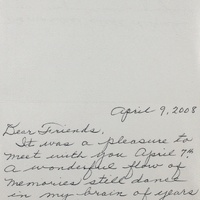 April 9, 2008
Dear Friends,
It was a pleasure to
meet with you April 7th
A wonderful flow of
memories still dance
in my brain of years